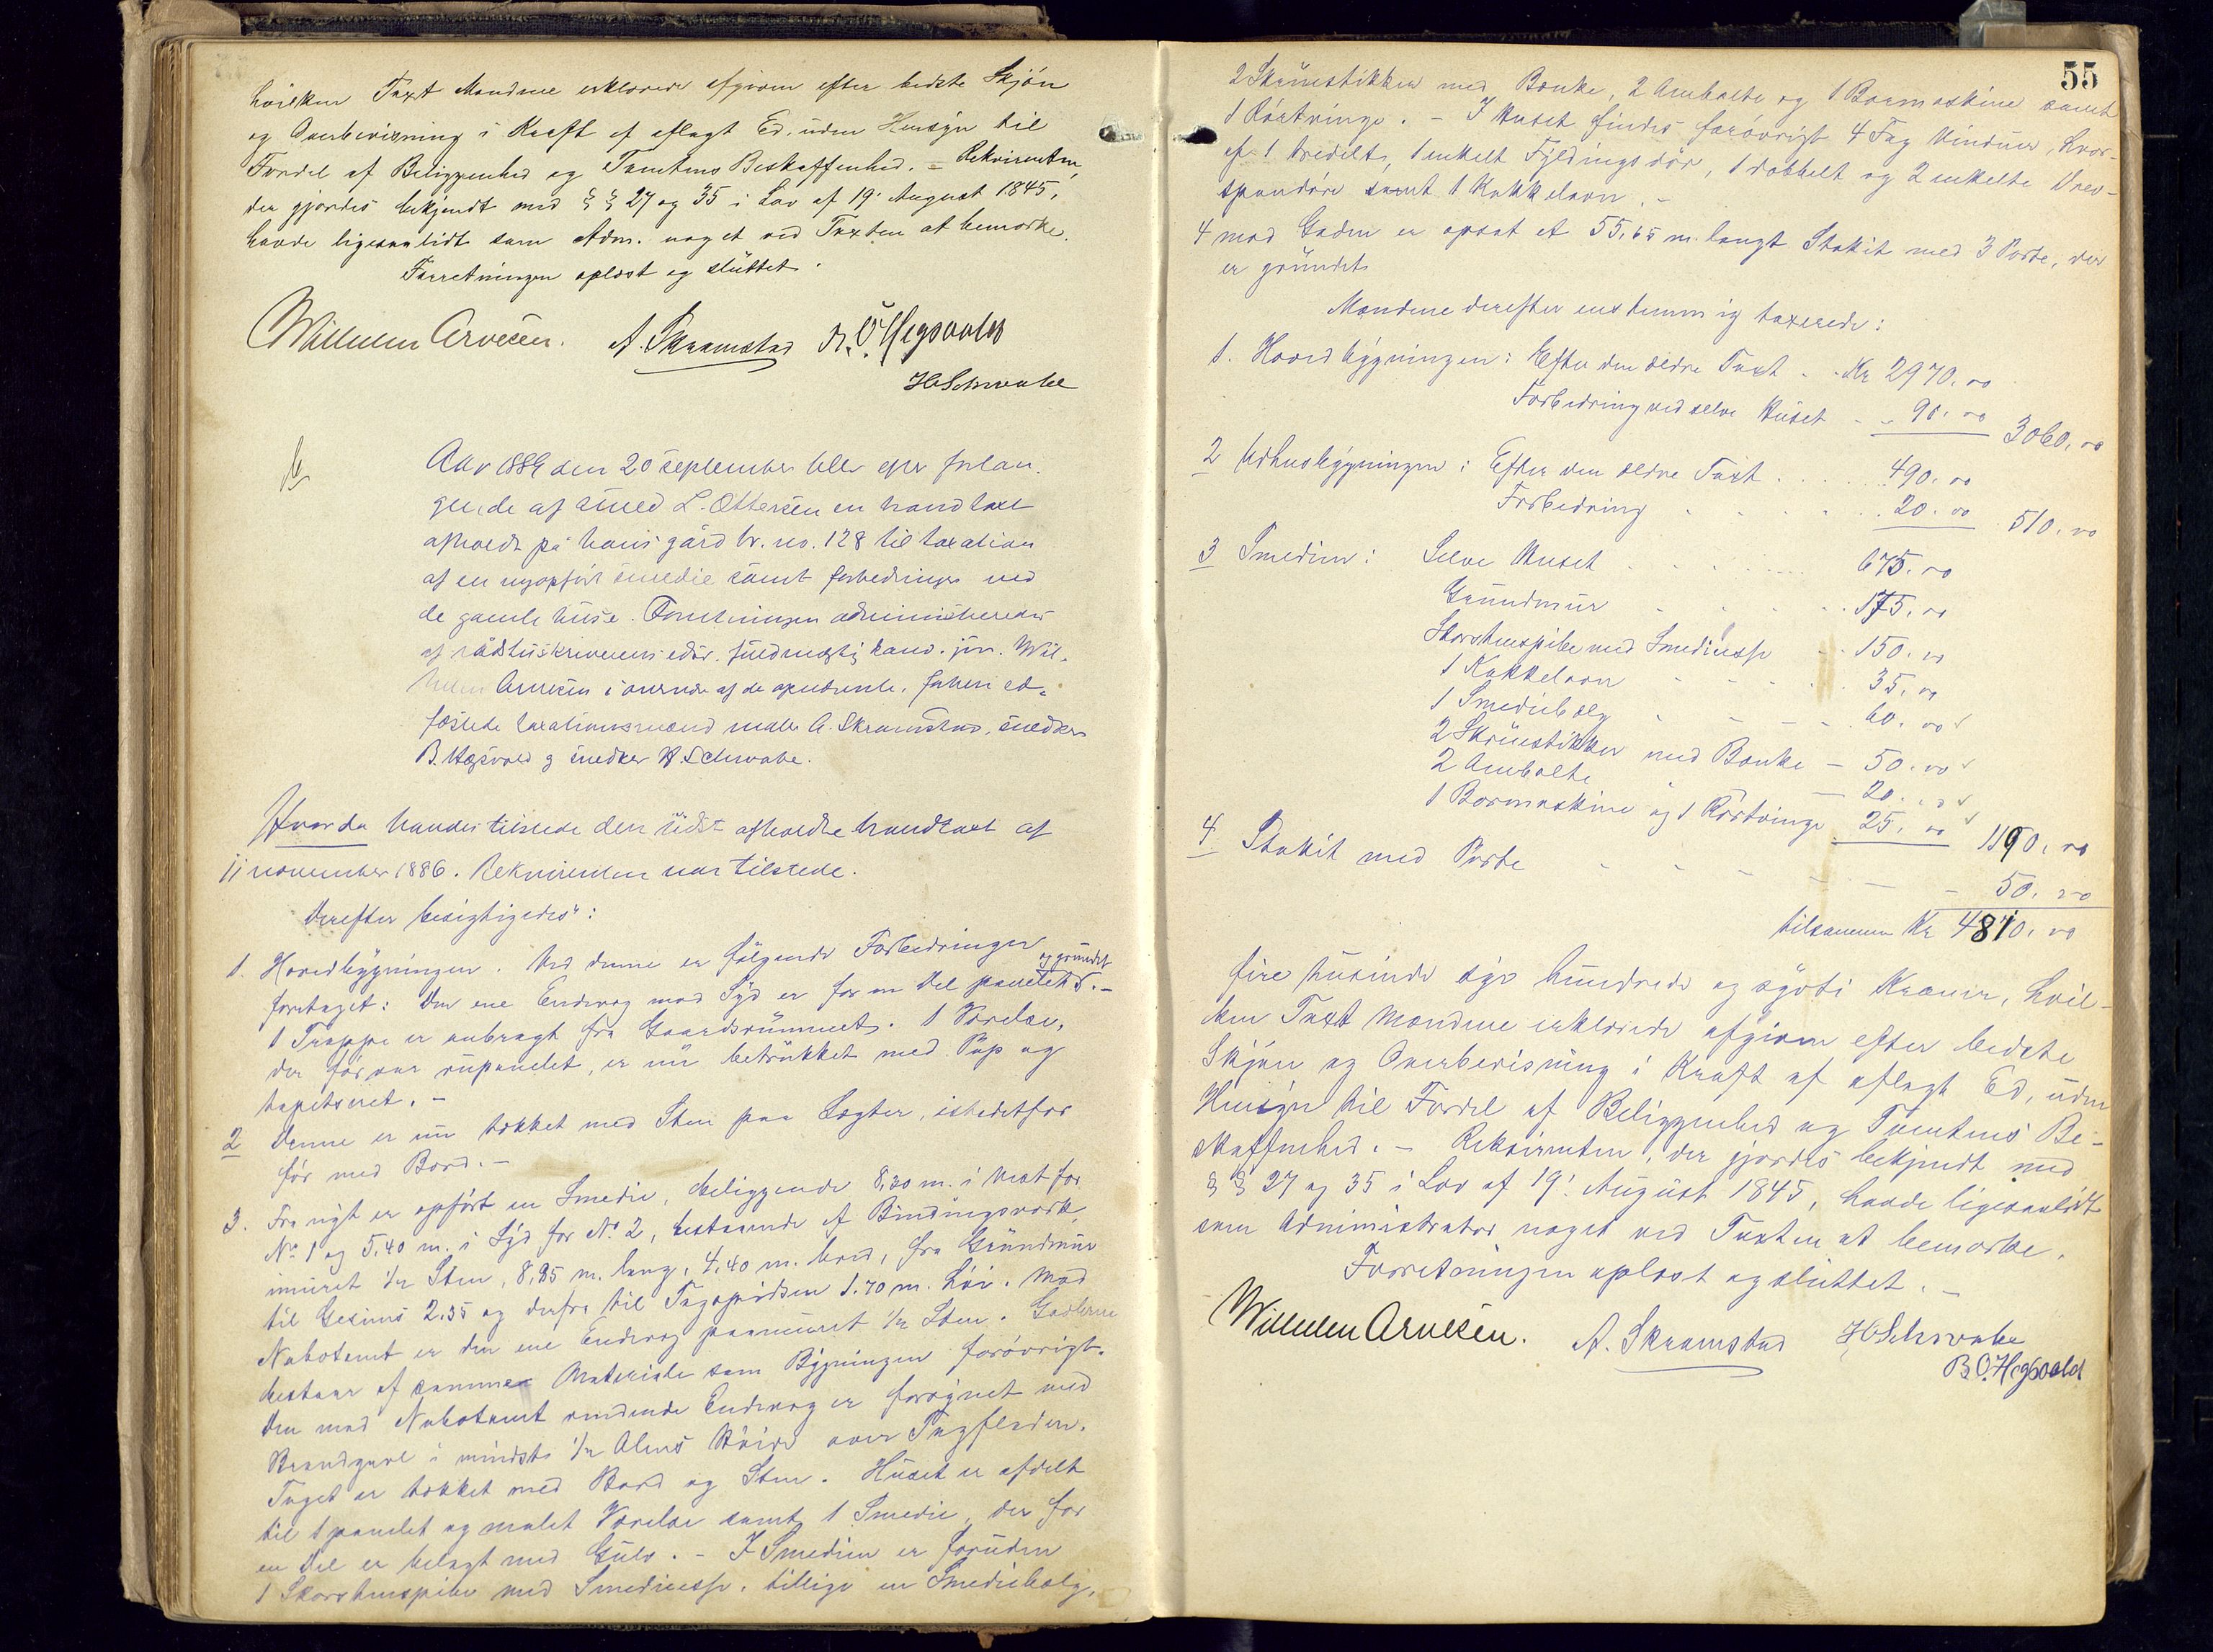 hvilken Taxt Mændene erklærede afgiven efter bedste Skjøn
og Overbevisning i Kraft af aflagt Ed, uden Hensyn til
Fordel af Beliggenhed og Tomtens Beskaffenhed. – Rekvirenten,
der gjordes bekjendt med § § 27 og 35 i Lov af 19. August 1845,
havde ligesaalidt som Adm. noget ved Taxten at bemærke.
Forretningen oplæst og sluttet.
Wilhelm Arvesen. A. Skramstad B. O. Hegsvold
H Schwabe
Aar 1889 den 20 september blev efter forlan-
gende af smed L. Ottersen en brandtaxt
afholdt på hans gård br. no. 128 til taxation
af en nyopført smedie samt forbedringer ved
de gamle huse. Forretningen administreredes
af rådstuskriverens edsv. fuldmægtig kand. jur. Wil-
helm Arvesen i overvær af de opnævnte, forhen ed-
fæstede taxationsmænd maler A. Skramstad, snedker
B. Hegsvold og snedker H. Schwabe.
Hvorda havdes tilstede den sidst afholdte brandtaxt af
11 november 1886. Rekvirenten var tilstede.
Derefter besigtigedes:
1. Hovedbygningen. Ved denne er følgende Forbedringer
foretaget: Den ene Endevæg mod Syd er for en Del panelet og grundet. –
1 Trappe er anbragt fra Gaardsrummet. 1 Værelse,
der før var upanelet, er nu betrukket med Pap og
tapetseret. –
2 Denne er nu tækket med Sten paa Lægter, istedetfor
før med Bord. –
3. Fra nyt er opført en Smedie, beliggende 8,20 m. i Vest for
No 1 og 5,40 m. i Syd for No 2, bestaaende af Bindingsværk,
muret 1/2 Sten, 8,85 m. lang, 4,40 m. bred, fra Grundmur
til Gesims 2.35 og derfra til Tagspidsen 1.70 m. høi. Mod
Nabotomt er den ene Endevæg paamuret 1/2 Sten. Gavlerne
bestaar af samme Materiale som Bygningen forøvrigt.
Den mod Nabotomt vendende Endevæg er forsynet med
Brandgavl i mindst 1/2 Alens Høide over Tagfladen.
Taget er tækket med Bord og Sten. Huset er afdelt
til 1 panelet og malet Værelse samt 1 Smedie, der for
en Del er belagt med Gulv. – I Smedien er foruden
1 Skorstenspibe med Smedieesse, tillige en Smediebælg,
55
2 Skruestikker med Bænke, 2 Ambolte og 1 Boremaskine samt
1 Rørtvinge. – I Huset findes forøvrigt 4 Fag Vinduer, hvor-
af 1 tredelt, 1 enkelt Fyldingsdør, 1 dobbelt og 2 enkelte
spændøre samt 1 Kakkelovn. –
4 mod Gaden er opsat et 55,65 m. langt Stakit med 3 Porte, der
er grundet
Mændene derefter enstemmig taxerede:
1. Hovedbygningen: Efter den ældre Taxt - - Kr 2970.00
Forbedring ved selve Huset - - 90.00 3060.00
2 Udhusbygningen: Efter den ældre Taxt . . . . 490.00
Forbedring . . . . . 20.00 510.00
3 Smedien: Selve Huset . . . . . 675.00
Grundmur . . . . . 175.00
Skorstenspibe med Smedieesse - - 150.00
1 Kakkelovn - - - - - 35.00
1 Smediebælg - - - - 60.00
2 Skruestikker med Bænke – 50.00
2 Ambolte — 20.00
1 Boremaskine og 1 Rørtvinge 25.00 1190.00
4 Stakit med Porte - - - - - 50.00
tilsammen Kr 4810.00
fire tusinde syv hundrede og sytti Kroner, hvil-
ken Taxt Mændene erklærede afgiven efter bedste
Skjøn og Overbevisning i Kraft af aflagt Ed, uden
Hensyn til Fordel af Beliggenhed og Tomtens Be-
skaffenhed. – Rekvirenten, der gjordes bekjendt med
§ § 27 og 35 i Lov af 19. August 1845, havde ligesaalidt
som Administrator noget ved Taxten at bemærke.
Forretningen oplæst og sluttet. –
Wilhelm Arvesen. A. Skramstad H Schwabe
B. O. Hegsvold